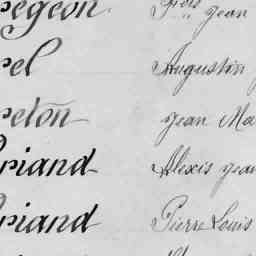 pegeon Fois " jean
rel Augustin j
reton jean Ma
riand Alexis jean
riand Pierre Louis